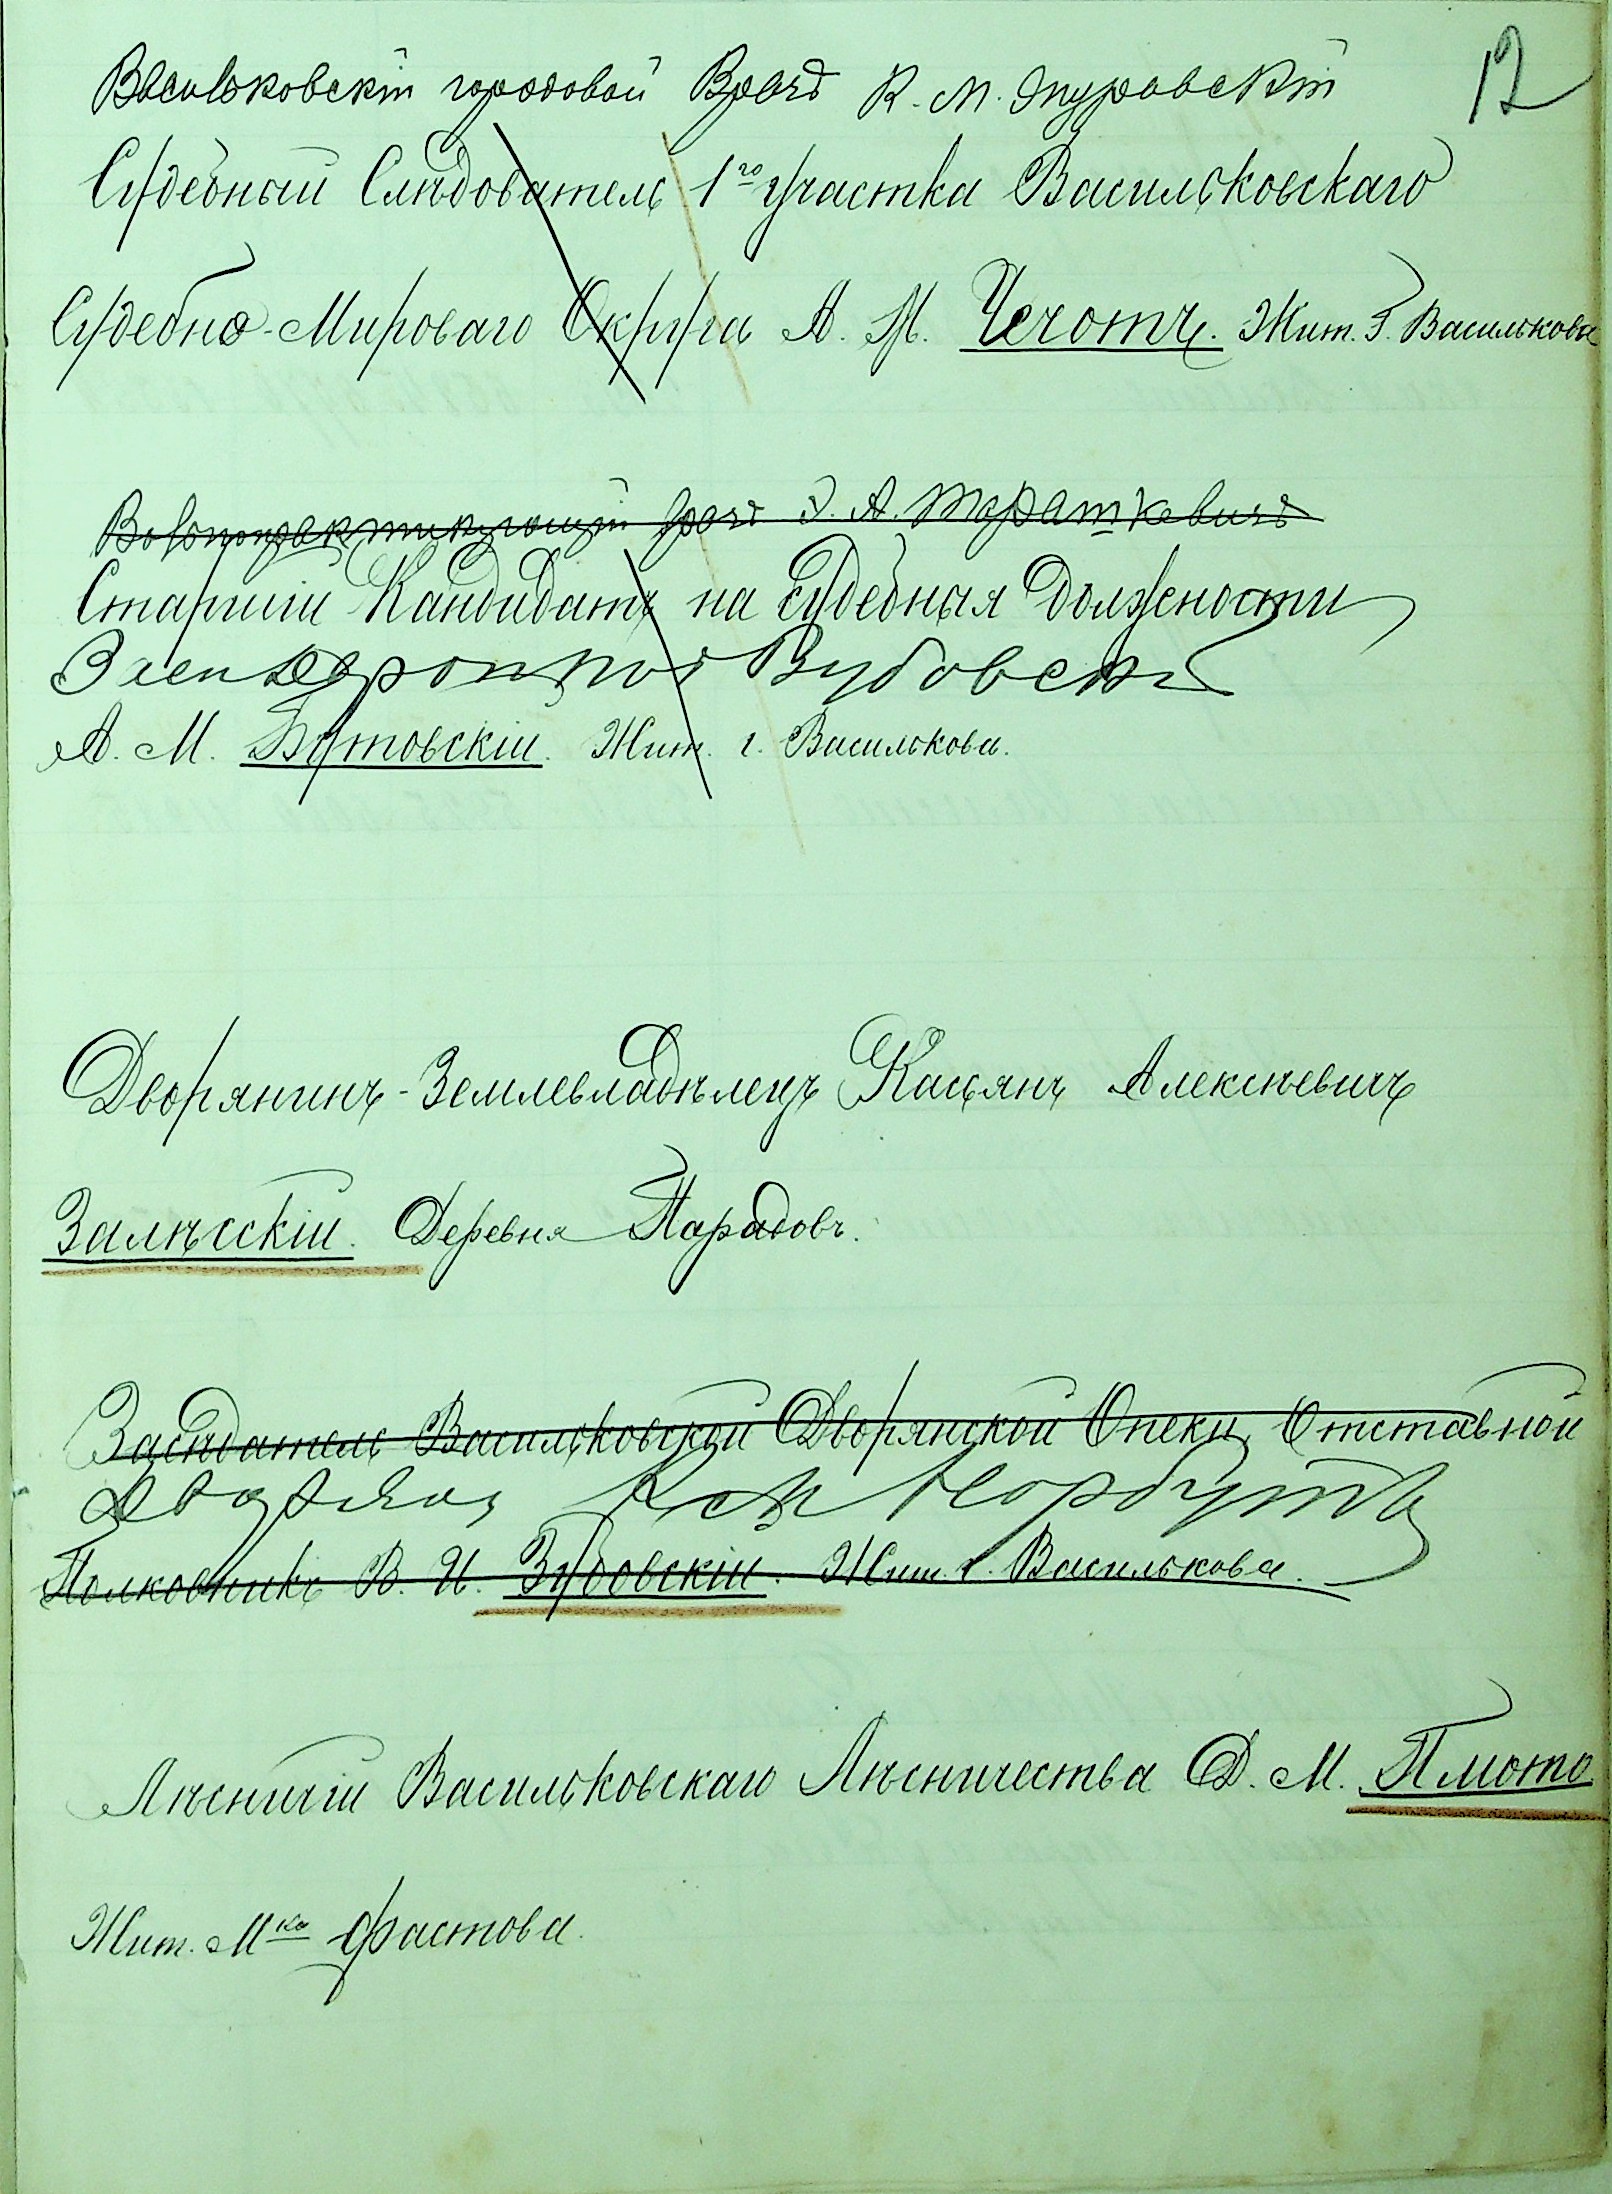 12
Васильковскій городовой Врачъ К. М. Туровскій
Судебный Слѣдователь 1го Участка Васильковскаго
Судебно-Мироваго Округа А. М. Чечотъ. Жит. г. Василькова
Вольнопрактикующій врачъ А. Тарашкевичъ
Старшій Кандидатъ на Судебныя Должности
А. М. Бутовскій. Жит. г. Василькова.
Дворянинъ-Землевладѣлецъ Касьянъ Алексѣевичъ
Залѣсскій. Деревня Парадовъ.
Засѣдатель Васильковской Дворянской Опеки, Отставной
Дворянин Нарбутъ
Полковникъ В. И. Зубовскій. Жит. г. Василькова.
Лѣсничій Васильковскаго Лѣсничества Д. М. Плото
Жит. Мка Фастова.